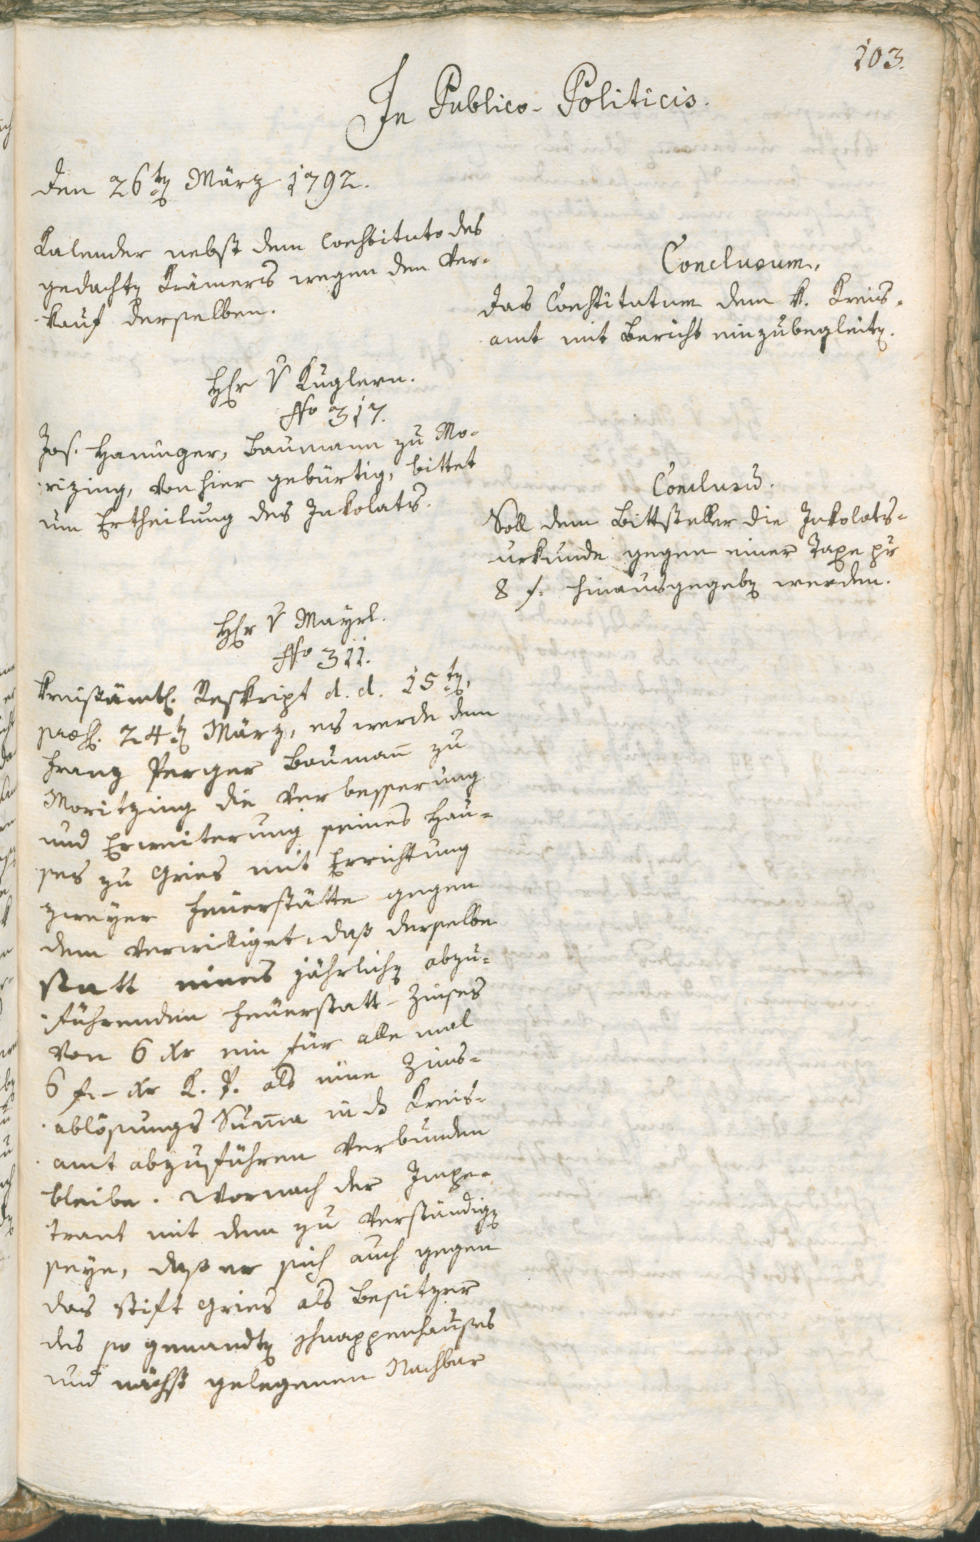 103.
In Publico-Politicis.
den 26ten März 1792.
Kalender nebst dem Constituto des
gedachten Krämers wegen den Ver-
kauf derselben.
Conclusum.
Das Constitutum dem k. Kreis-
amt mit Bericht einzubegleiten.
Herr v Kuglern.
No 317.
Jos. Haninger, Baumann zu Mo-
rizing, von hier gebürtig, bittet
um Ertheilung des Inkolats.
Conclusum.
Soll dem Bittsteller die Inkolats-
urkunde gegen einer Taxe pr
8 f. hinausgegeben werden.
Herr v Mayrl.
No 311.
Kreisämtl. Reskript d. d. 15ten,
praes. 24ten März, es werde dem
Franz Perger Baumann zu
Moritzing die Verbesserung
und Erweiterung seines Hau-
ses zu Gries mit Errichtung
zweyer Feuerstätte gegen
dem verwilliget, daß derselbe
statt eines jährlichen abzu-
führenden Feuerstatt-Zinses
von 6 xr ein für alle mal
6 f. - xr als eine Zins-
ablösungs Summa in das Kreis-
amt abzuführen verbunden
bleibe. Wornach der Impe-
trant mit dem zu verständigen
seye, daß er sich auch gegen
das Stift Gries als Besitzer
des so genandten Schnappenhauses
und nächst gelegenen Nachbar